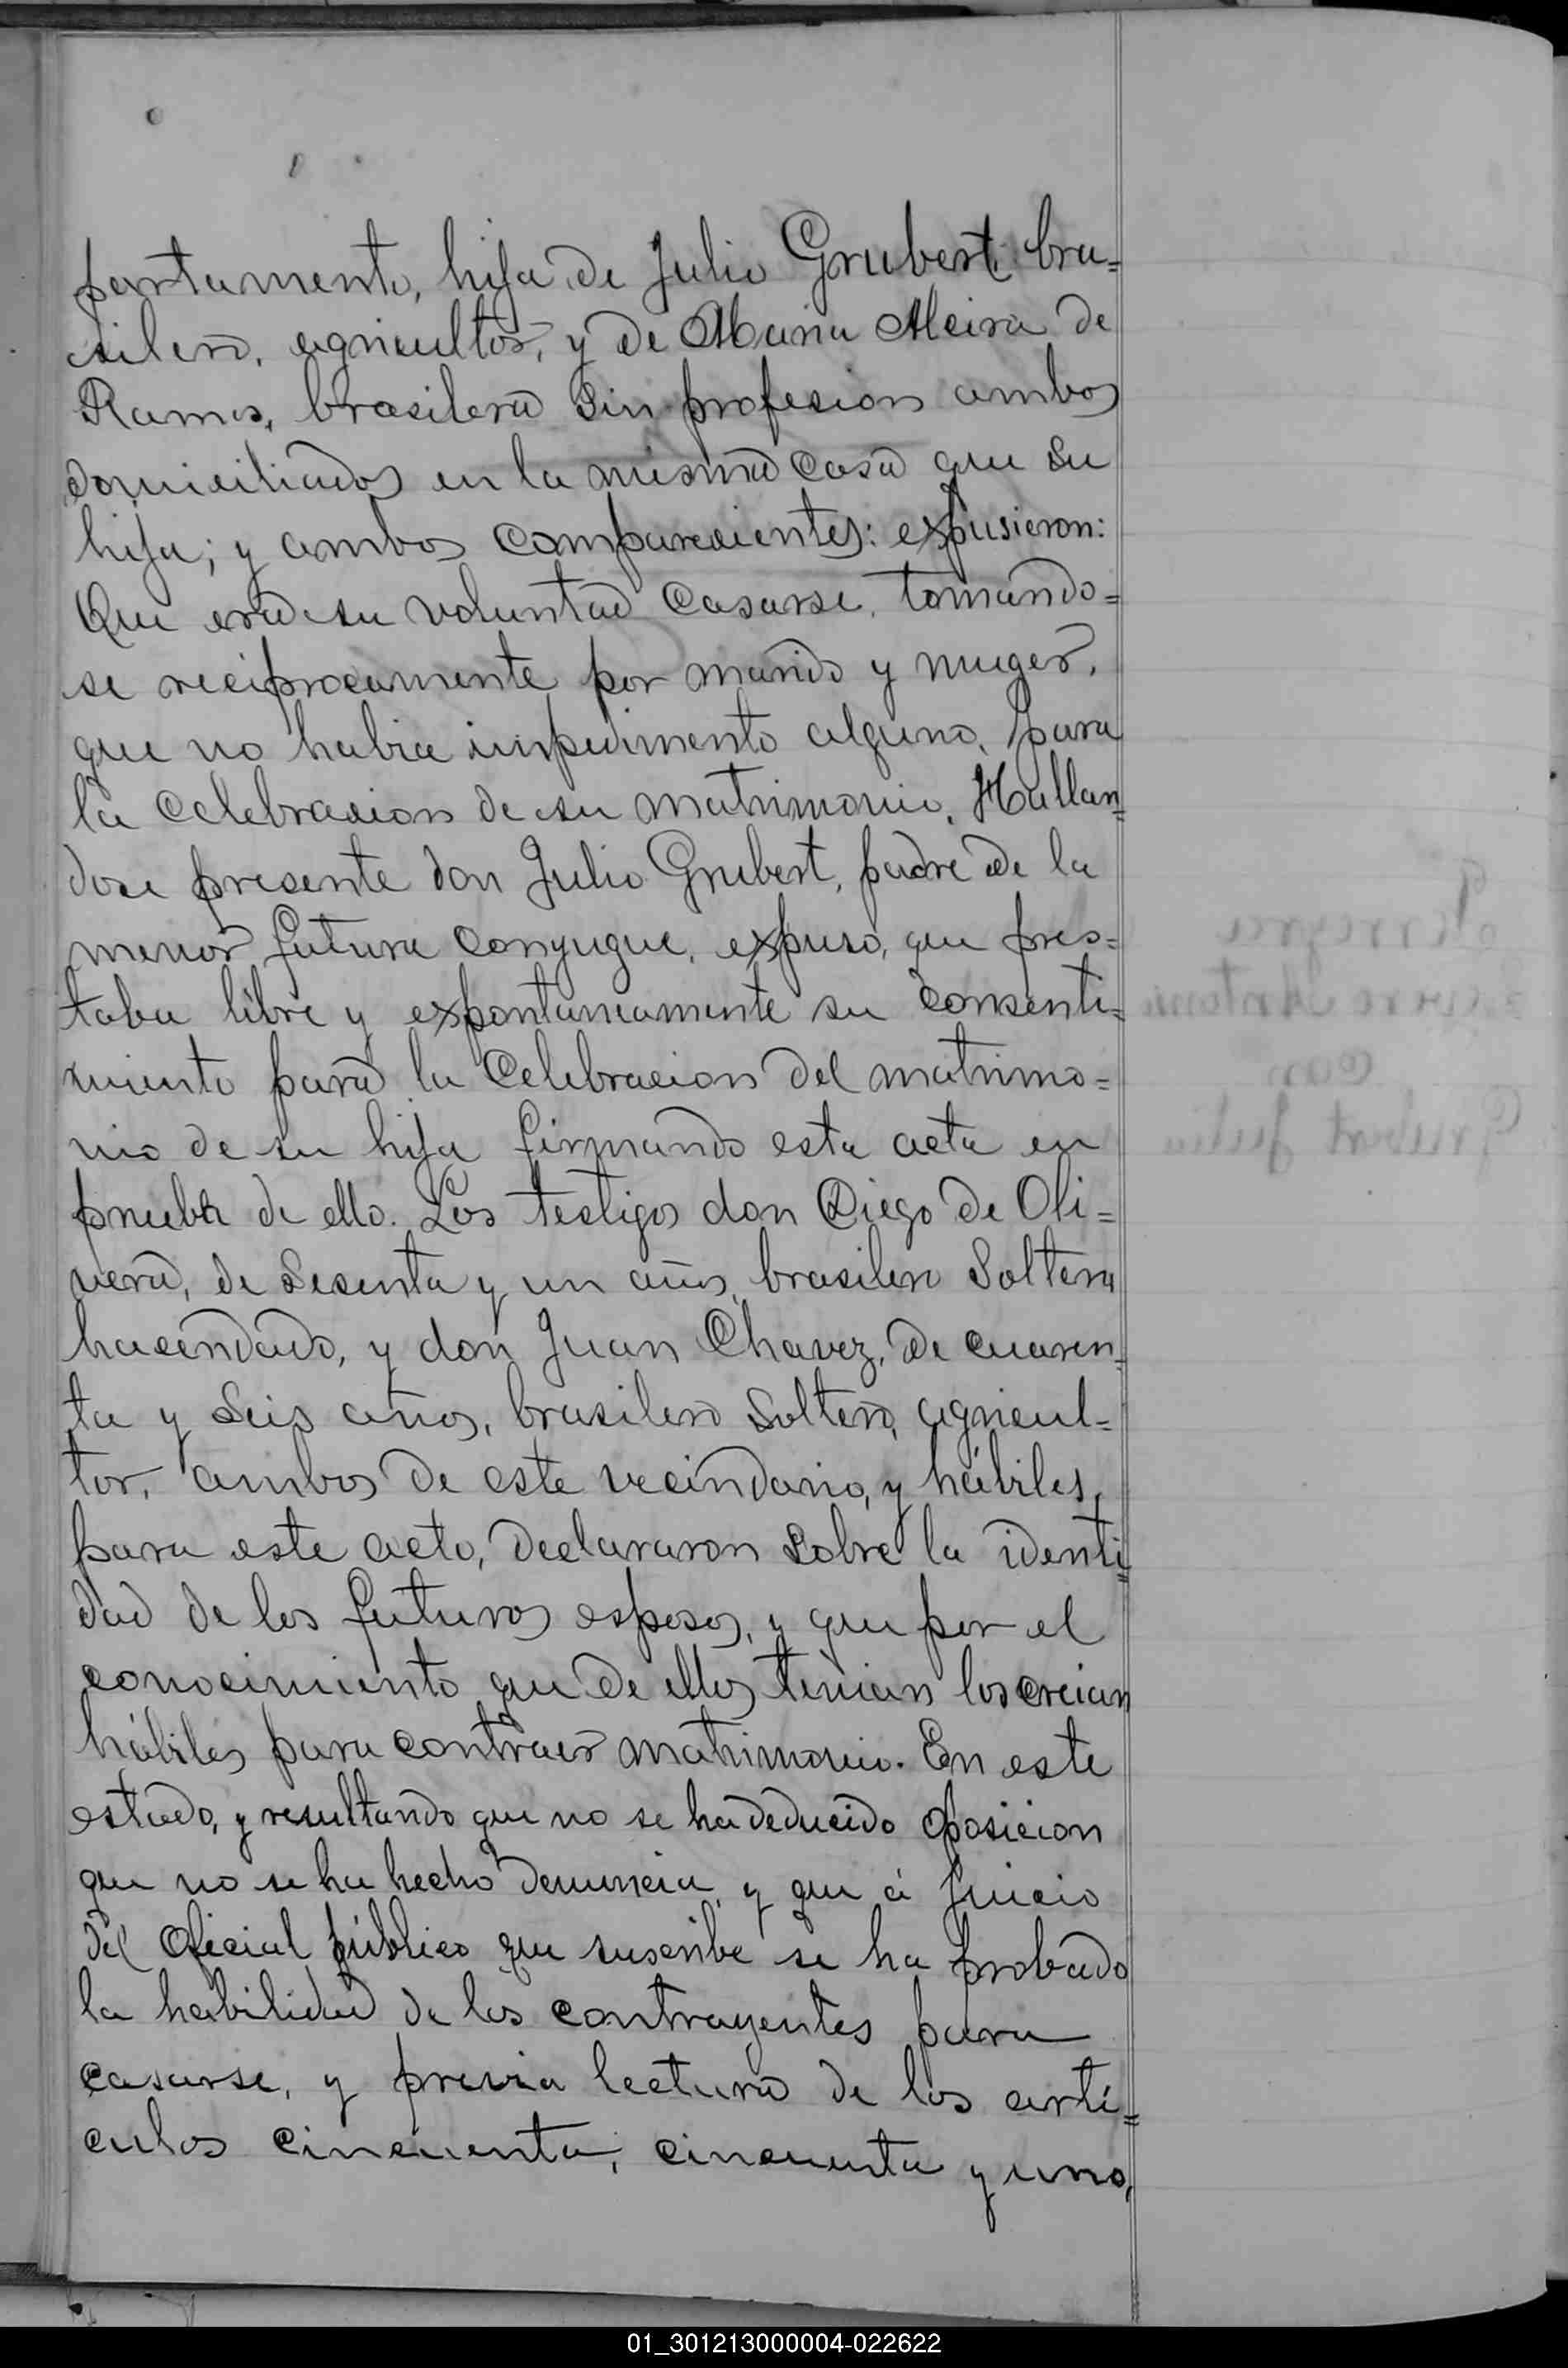 partamento, hija de Julio Grubert, bra=
silero, agricultor, y de Maria Meira de
Ramos, brasilera sin profesion ambos
domiciliados en la misma casa que su
hija; y ambos comparecientes: expusieron:
Que era su voluntad casarse, tomando=
se reciprocamente por marido y muger,
que no habia impedimento alguno, para
la celebracion de su matrimonio. Hallan=
dose presente don Julio Grubert, padre de la
menor futura conyugue, expuso, que pres=
taba libre y expontaneamente su consenti=
miento para la celebracion del matrimo=
nio de su hija firmando esta acta en
prueba de ello. Los testigos don Diego de Oli=
vera, de sesenta y un años, brasilero soltero
hacendado, y don Juan Chavez, de cuaren=
ta y seis años, brasilero soltero, agricul=
tor, ambos de este vecindario, y hábiles,
para este acto, declararon sobre la identi=
dad de los futuros esposos, y que por el
conocimiento que de ellos tenian los creian
hábiles para contraer matrimonio. En este
estado, y resultando que no se ha deducido oposicion
que no se ha hecho denuncia, y que á juicio
del oficial público que suscribe se ha probado
la habilidad de los contrayentes para
casarse, y previa lectura de los arti=
culos cincuenta, cincuenta y uno,
con
Grubert Julia
01_301213000004-022622